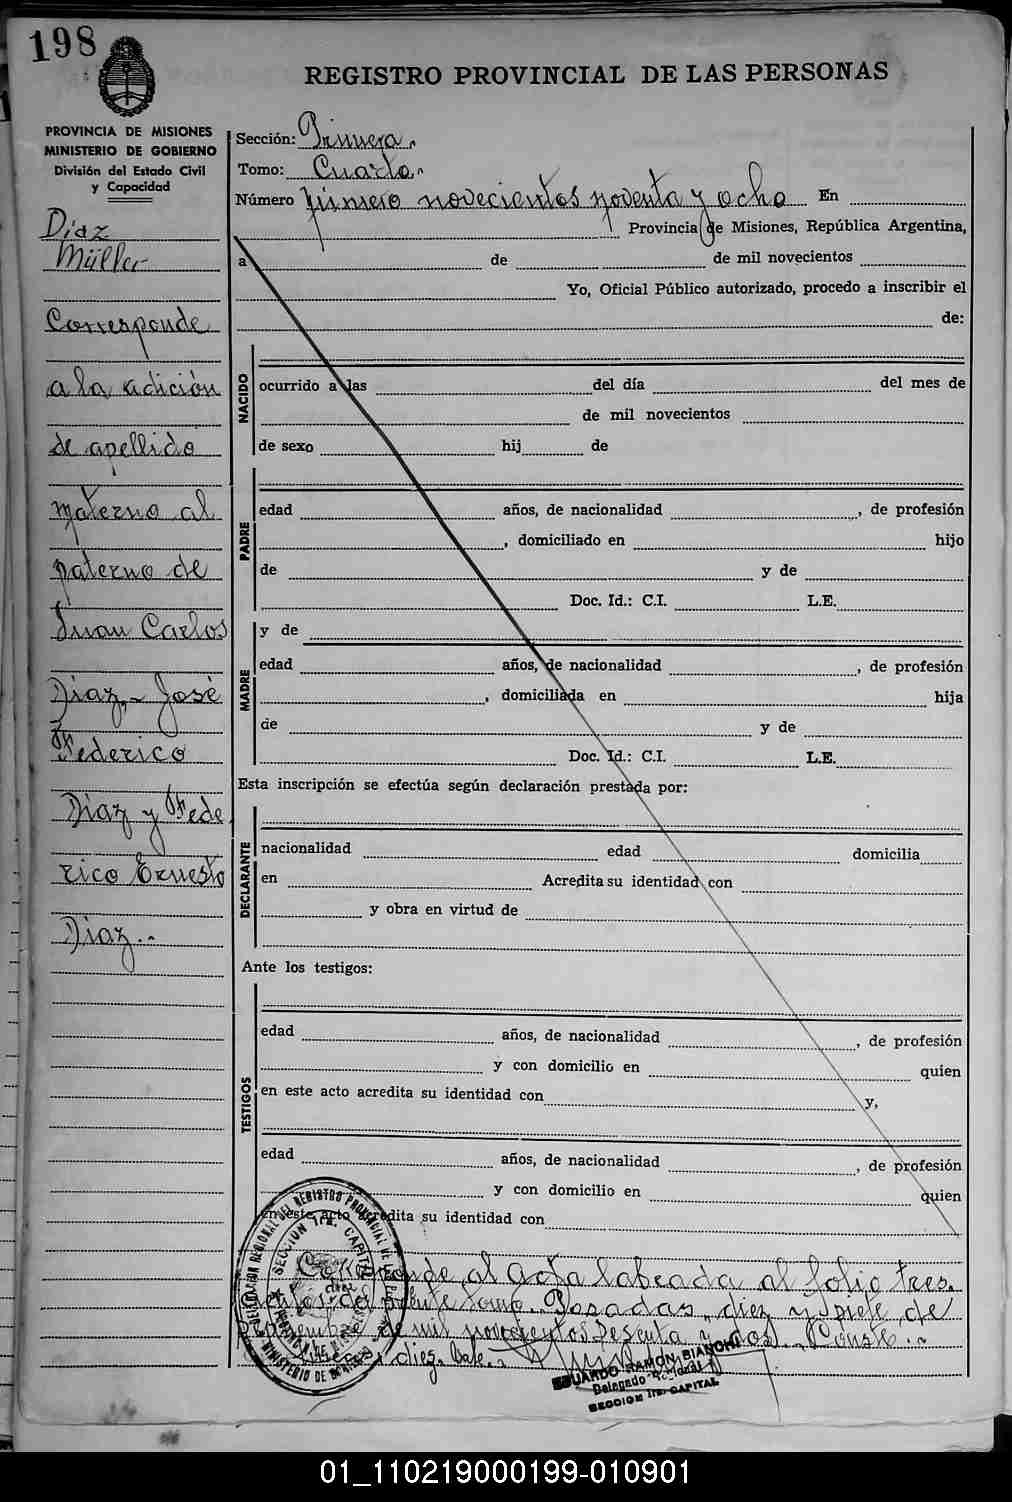 198
REGISTRO PROVINCIAL DE LAS PERSONAS
PROVINCIA DE MISIONES
MINISTERIO DE GOBIERNO
División del Estado Civil
y Capacidad
Díaz
Müller
Corresponde
a la adición
de apellido
materno al
paterno de
Juan Carlos
Díaz, José
Federico
Díaz y Fede
rico Ernesto
Díaz.-
Sección: Primera.
Tomo: Cuarto.
Número novecientos noventa y ocho En
Provincia de Misiones, República Argentina,
a de de mil novecientos
Yo, Oficial Público autorizado, procedo a inscribir el
de:
NACIDO
ocurrido a las del día del mes de
de mil novecientos
de sexo hij de
PADRE
edad años, de nacionalidad , de profesión
, domiciliado en hijo
de y de
Doc. Id.: C.I. L.E.
MADRE
y de
edad años, de nacionalidad , de profesión
, domiciliada en hija
de y de
Doc. Id.: C.I. L.E.
Esta inscripción se efectúa según declaración prestada por:
DECLARANTE
nacionalidad edad domicilia
en Acredita su identidad con
y obra en virtud de
Ante los testigos:
TESTIGOS
edad años, de nacionalidad , de profesión
y con domicilio en quien
en este acto acredita su identidad con y,
edad años, de nacionalidad , de profesión
y con domicilio en quien
en este acto acredita su identidad con
Corresponde al acta labrada al folio tres-
Tomo. Posadas, diez y siete de
de mil novecientos sesenta y dos. Conste.-
diez. Vale.-
EDUARDO RAMON BIANCHI
Delegado Regional
SECCION 1ra. CAPITAL
DELEGACION REGIONAL DEL REGISTRO PROVINCIAL DE LAS PERSONAS
SECCION 1ra. CAPITAL
MINISTERIO DE GOBIERNO
01_110219000199-010901